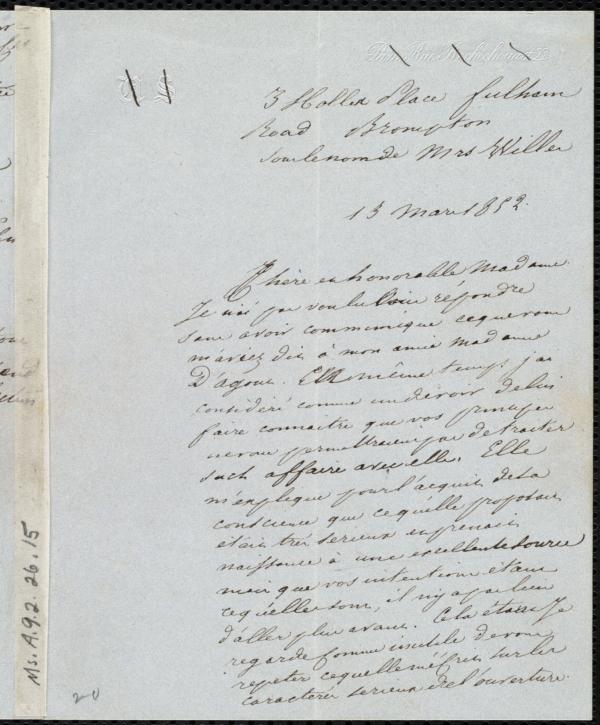 3 Holles Place Fulham
Road Brompton
sous le nom de Mrs Willer
13 Mars 1852.
Chère et honorable Madame
Je n'ai pas voulu répondre
sans avoir communiqué ce que vous
m'aviez dit à mon amie Madame
D'agout. En même temps j'ai
considéré comme un devoir de lui
faire connaitre que vos principes
ne vous permettraient pas de traiter
such affaire avec elle. Elle
m'explique pour l'acquis de sa
conscience que ce qu'elle proposait
était très serieux et prenait
naissance à une excellente source
mais que vos intentions étant
ce qu'elles sont, il n'y a pas lieu
d'aller plus avant. Cela étant Je
regarde comme inutile de vous
repeter ce qu'elle m'écrit sur le
caractère serieux de l'ouverture.
Ms. A.9.2. 26.15